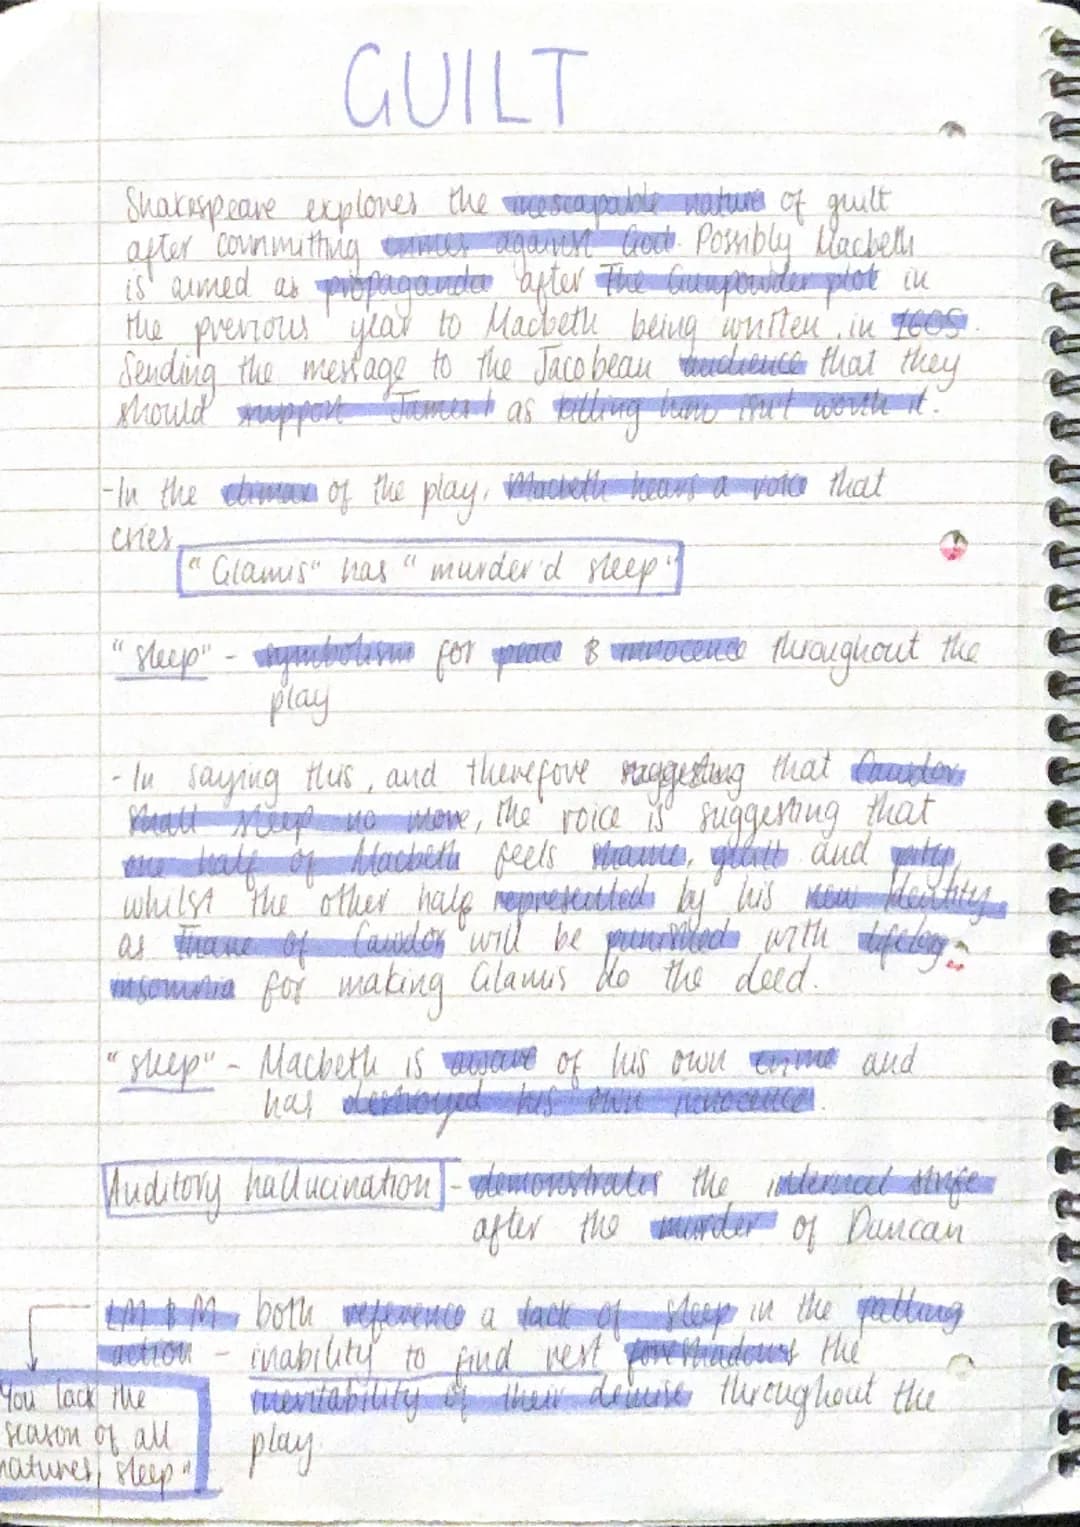 GUILT
Shakespeare explores the inescapable nature of guilt
after committing crimes against God. Possibly Macbeth
is aimed as propaganda after The Gunpowder plot in
the previous year to Macbeth being written in 1605.
Sending the message to the Jacobean audience that they
should support James I as killing him isn't worth it.
-In the climax of the play, Macbeth hears a voice that
cries
"Glamis" has "murder'd sleep"
"sleep" - symbolism for peace & innocence throughout the
play
- In saying this, and therefore suggesting that Cawdor
shall sleep no more, the voice is suggesting that
one half of Macbeth feels shame, guilt and pity,
whilst the other half represented by his new identity
as Thane of Cawdor will be punished with lifelong
insomnia for making Glamis do the deed.
"sleep" - Macbeth is aware of his own crime and
has destroyed his own innocence.
Auditory hallucination - demonstrates the internal strife
after the murder of Duncan
LM & M both reference a lack of sleep in the falling
action - inability to find rest foreshadows the
inevitability of their demise throughout the
play.
You lack the
season of all
natures, sleep"